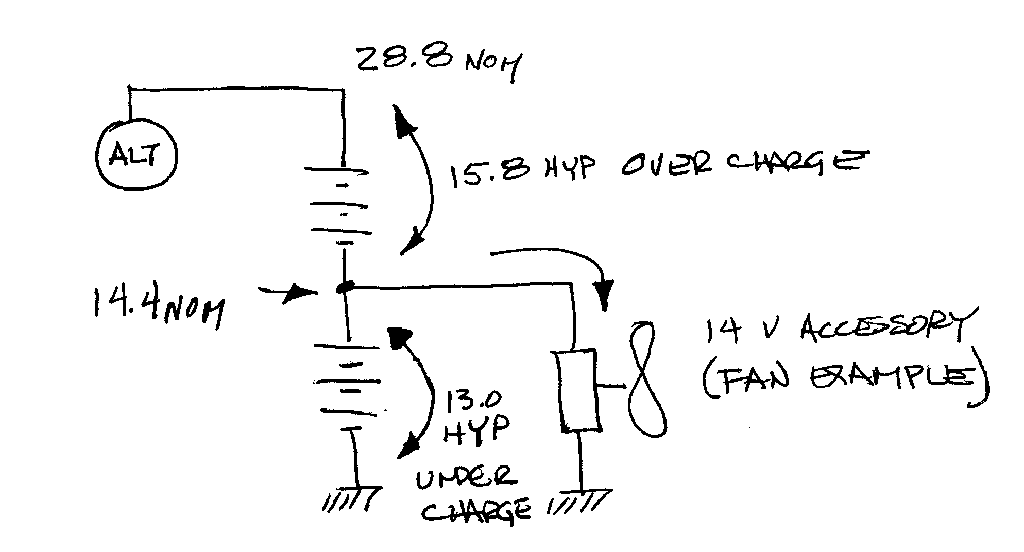 28.8 NOM
ALT
15.8 HYP OVER CHARGE
14.4 NOM
14 V ACCESSORY
(FAN EXAMPLE)
13.0
HYP
UNDER
CHARGE